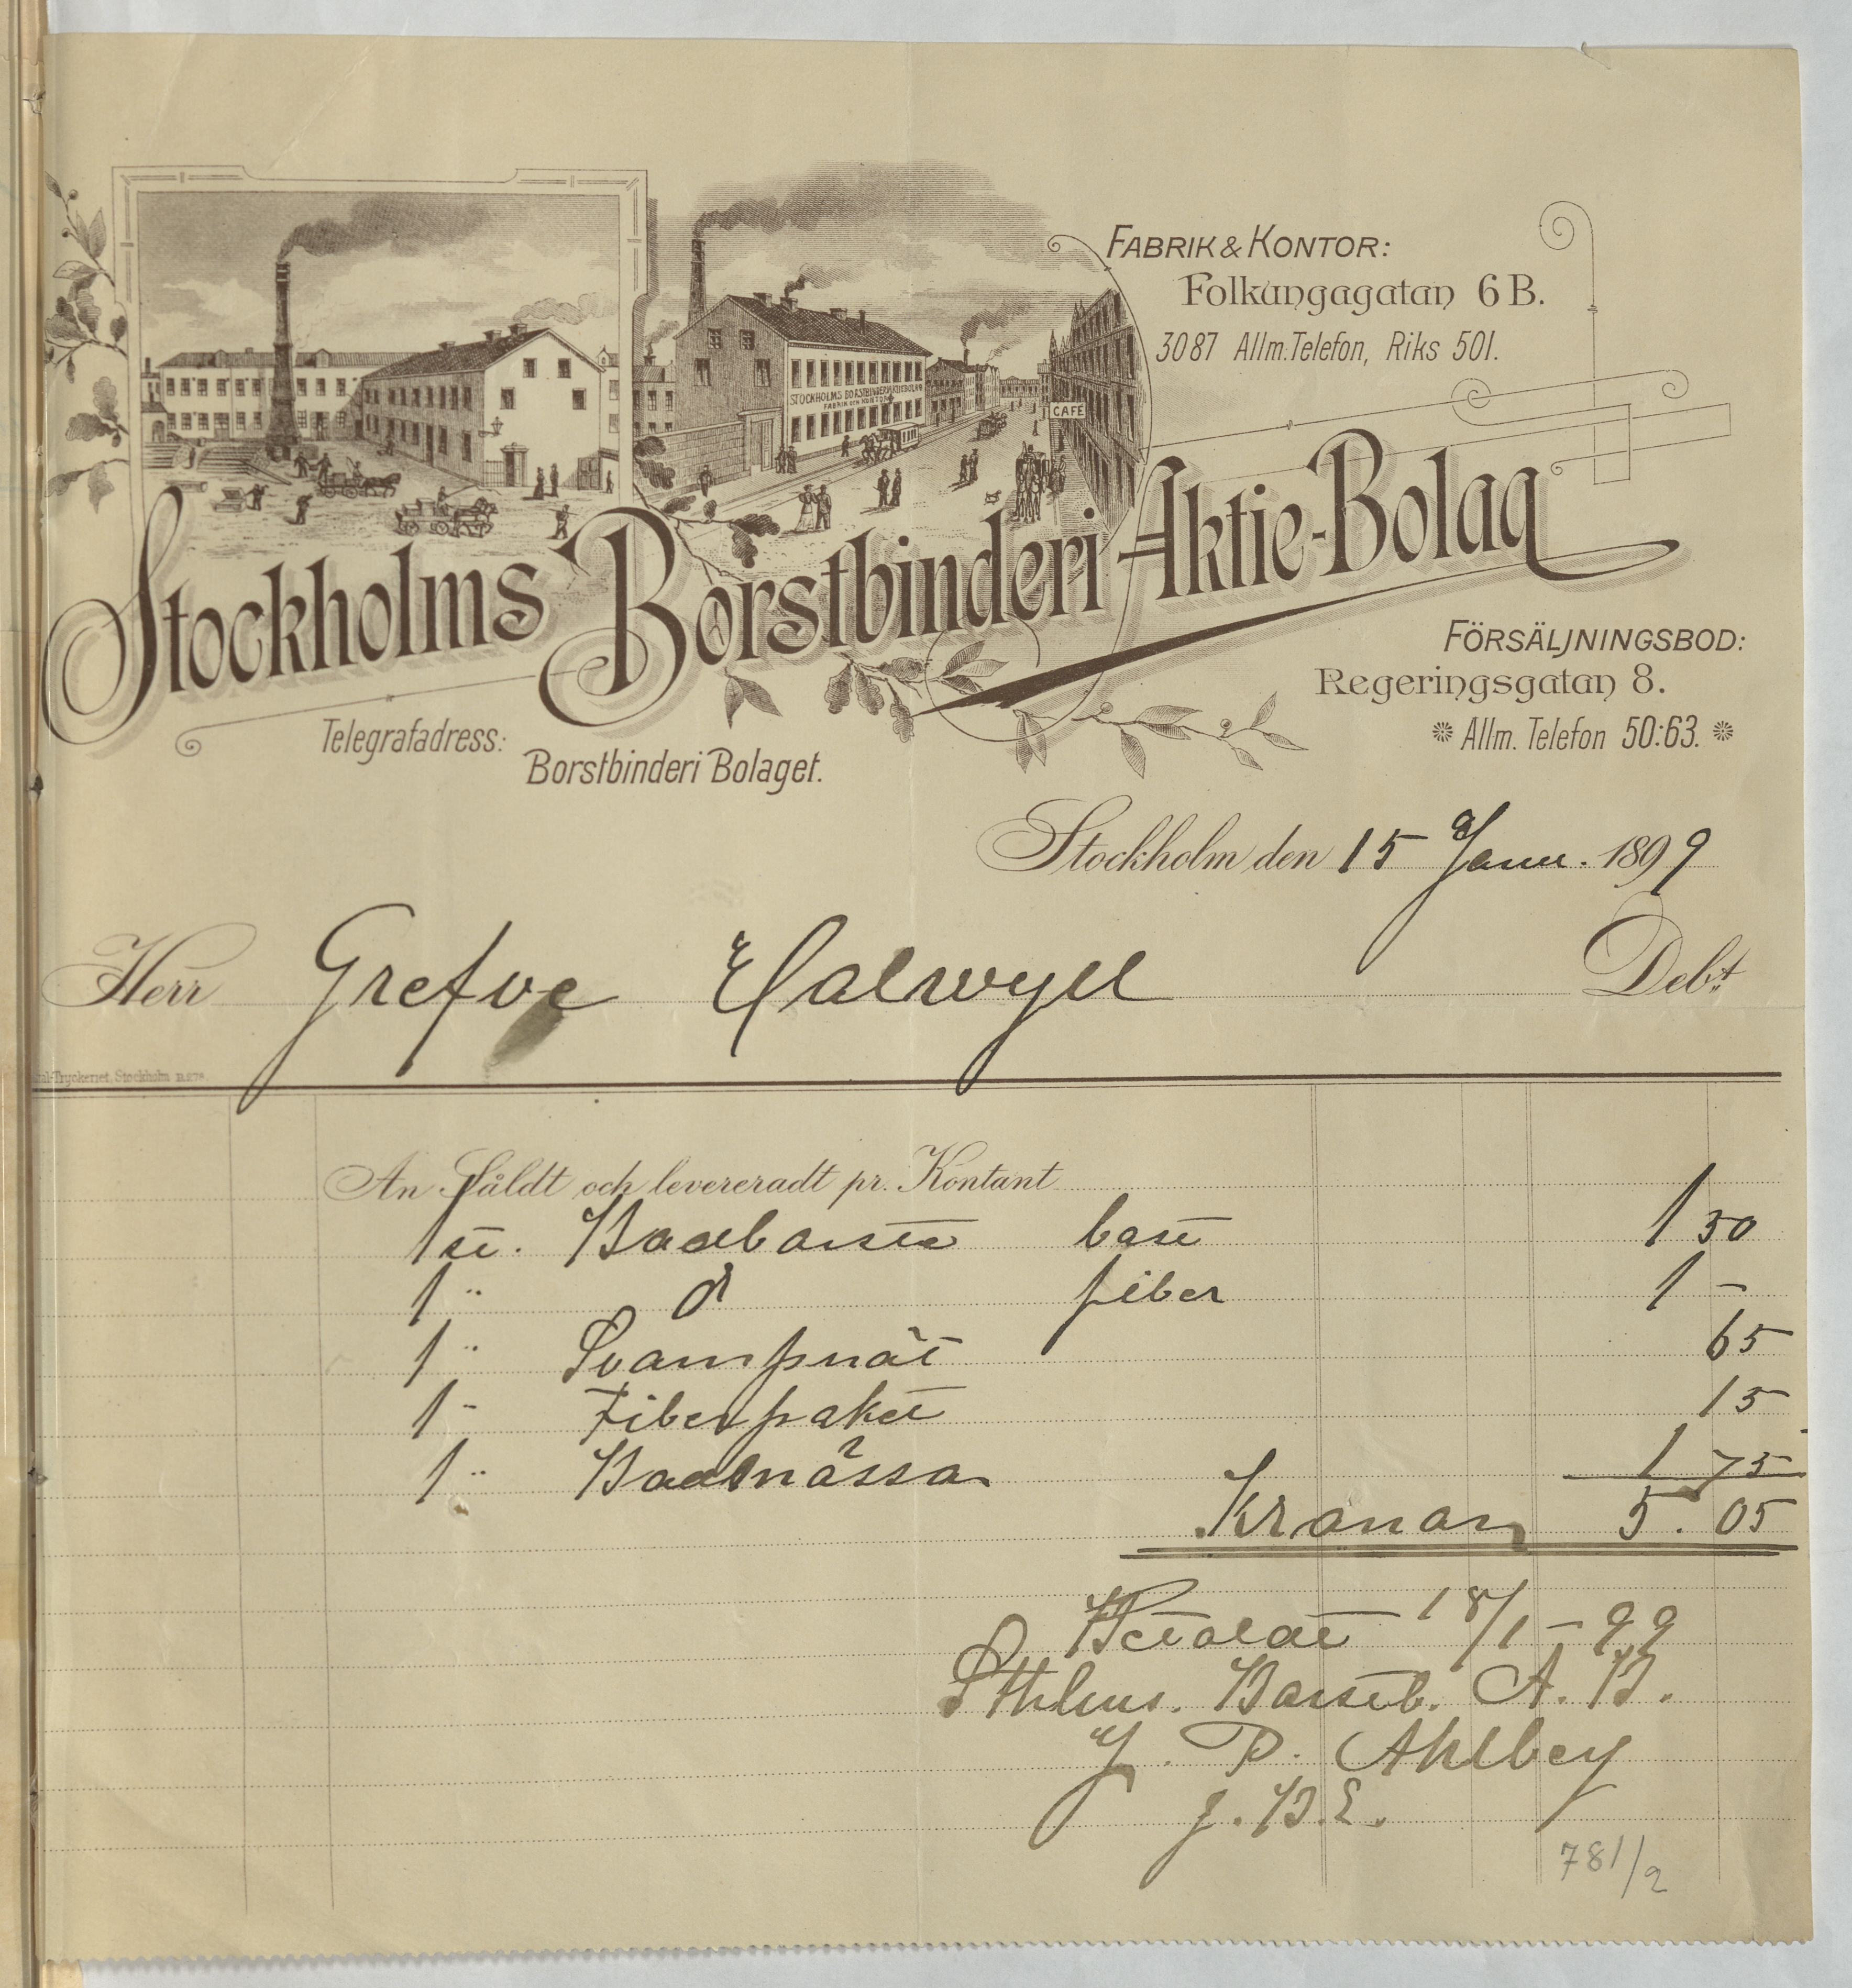 FABRIK & KONTOR:
Folkungagatan 6 B.
3087 Allm. Telefon, Riks 501.
STOCKHOLMS BORSTBINDERI AKTIEBOLAG
FABRIK OCH KONTOR
CAFÉ
Stockholms Borstbinderi Aktie-Bolag
FÖRSÄLJNINGSBOD:
Regeringsgatan 8.
Allm. Telefon 50:63.
Telegrafadress:
Borstbinderi Bolaget.
Stockholm den 15 Janu. 1899
Herr Grefve Halwyll Debt
Tryckeriet, Stockholm
An Såldt och levereradt pr. Kontant
1 st. Badborste bast 1 50
1 " d fiber 1 –
1 " Svampnät 65
1 " Fiberpaket 15
1 " Badmössa 1 75
Kronor 5.05
Betaldt 18/1 – 99
Sthlms. Borstb. A. B.
J. P. Ahlbey
g. B. E.
781/2